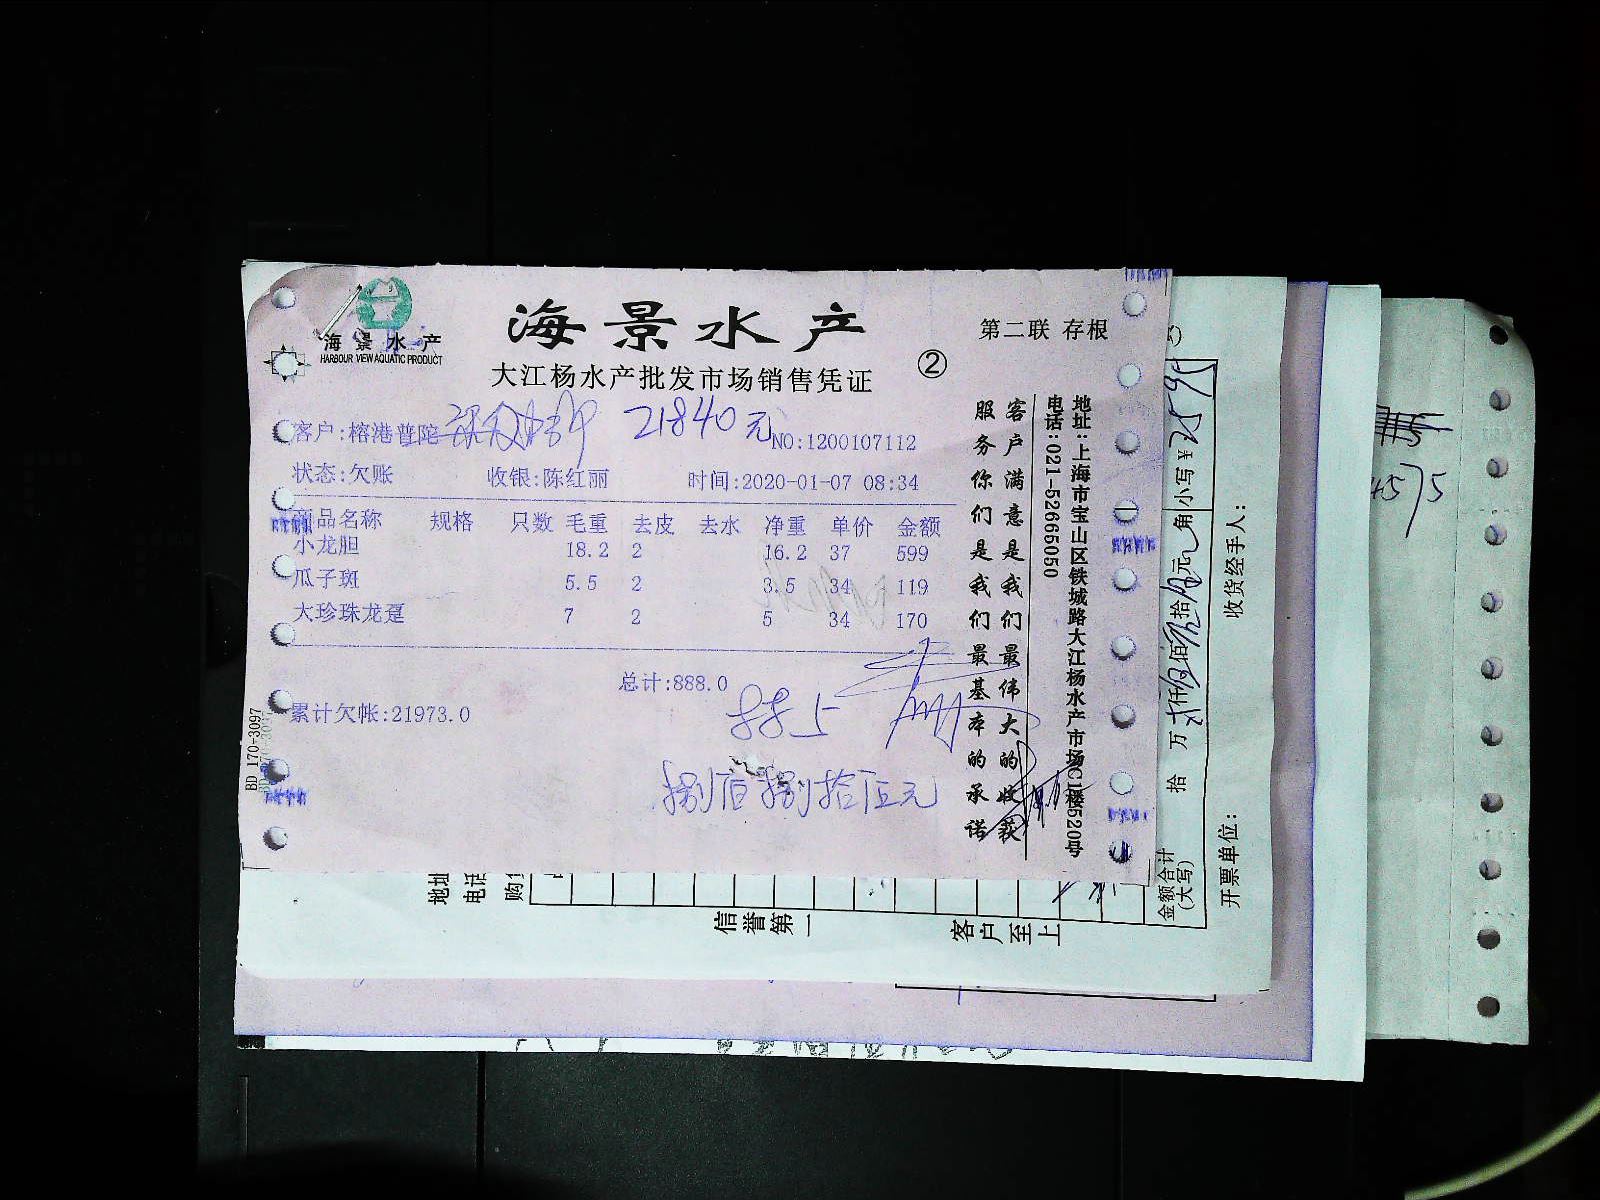 海景水产
HARBOUR VIEW AQUATIC PRODUCT
海景水产
大江杨水产批发市场销售凭证
②
第二联 存根
客户:榕港普陀
21840元
NO:1200107112
状态:欠账 收银:陈红丽 时间:2020-01-07 08:34
商品名称 规格 只数 毛重 去皮 去水 净重 单价 金额
小龙胆 18.2 2 16.2 37 599
瓜子斑 5.5 2 3.5 34 119
大珍珠龙趸 7 2 5 34 170
总计:888.0
累计欠帐:21973.0
捌佰捌拾伍元
BD 170-3097
客户满意是我们最伟大的收获
服务你们是我们最基本的承诺
地址:上海市宝山区铁城路大江杨水产市场C1楼520号
电话:021-52665050
小写¥2595
拾 万 贰仟伍佰 拾 元 角
金额合计
(大写)
收货经手人:
开票单位:
地址
电话
信誉第一
客户至上
4575